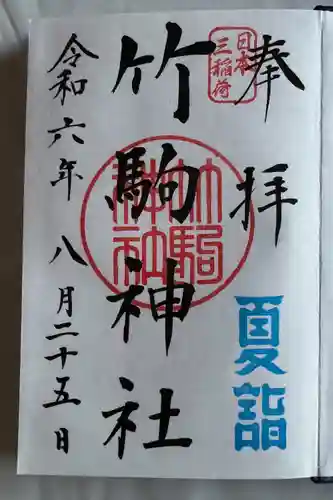 奉拝
日本
三稲荷
夏詣
竹駒神社
竹駒神社
令和六年八月二十五日